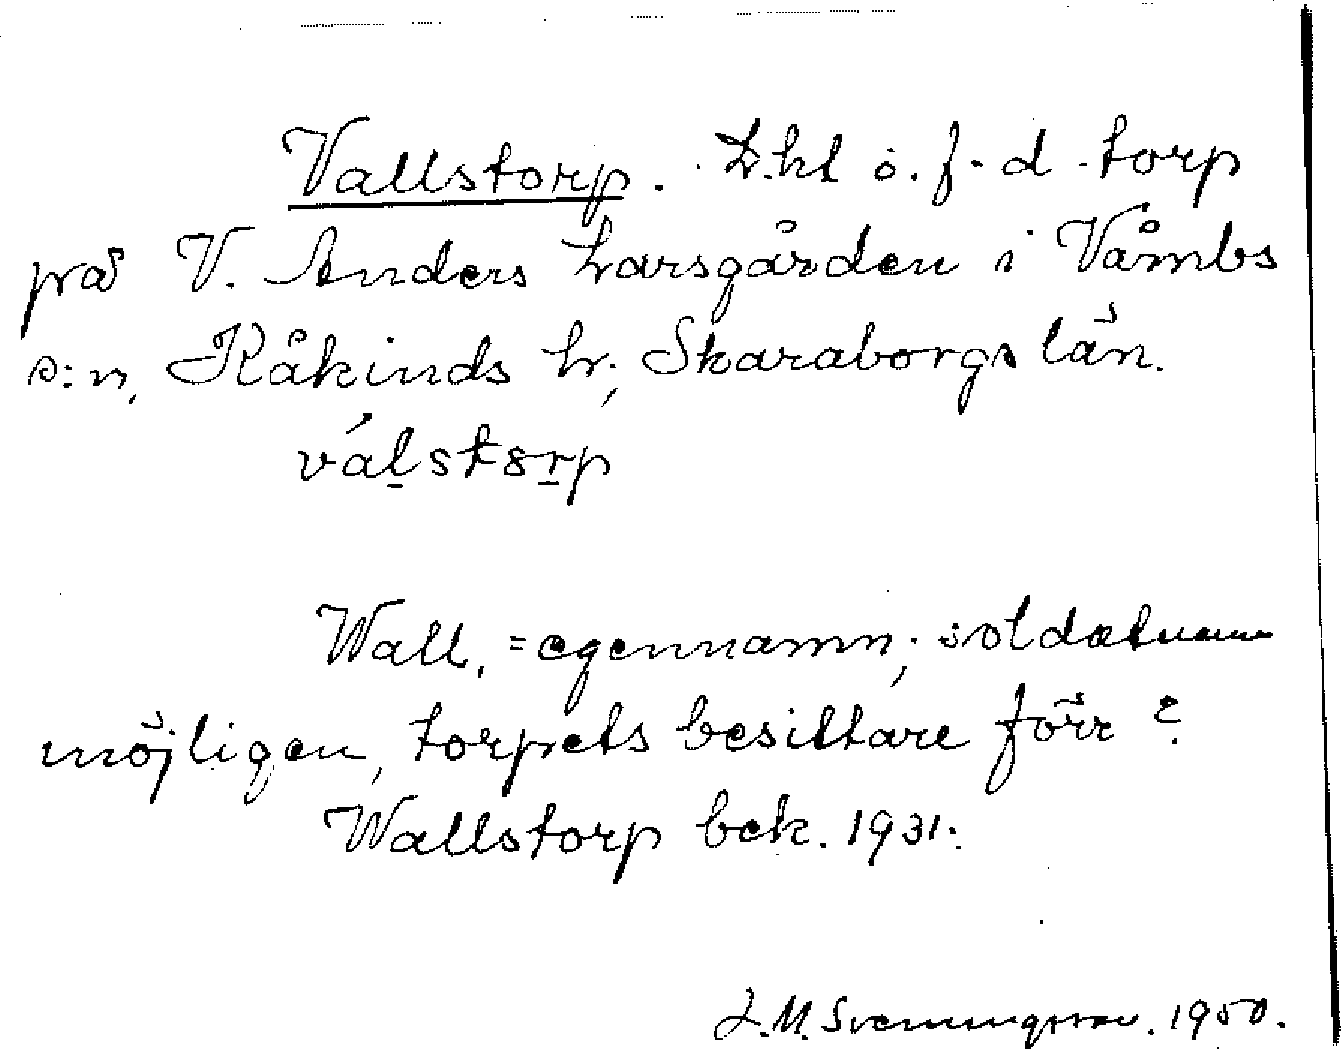 Vallstorp. L.ht o. f.d. torp
på V. Anders Larsgården i Våmbs
s:n, Kåkinds hr, Skaraborgs län.
válstorp
Wall, = egennamn; soldatnamn
möjligen, torpets besittare förr?
Wallstorp bek. 1931.
J.M. Svenningsson. 1950.